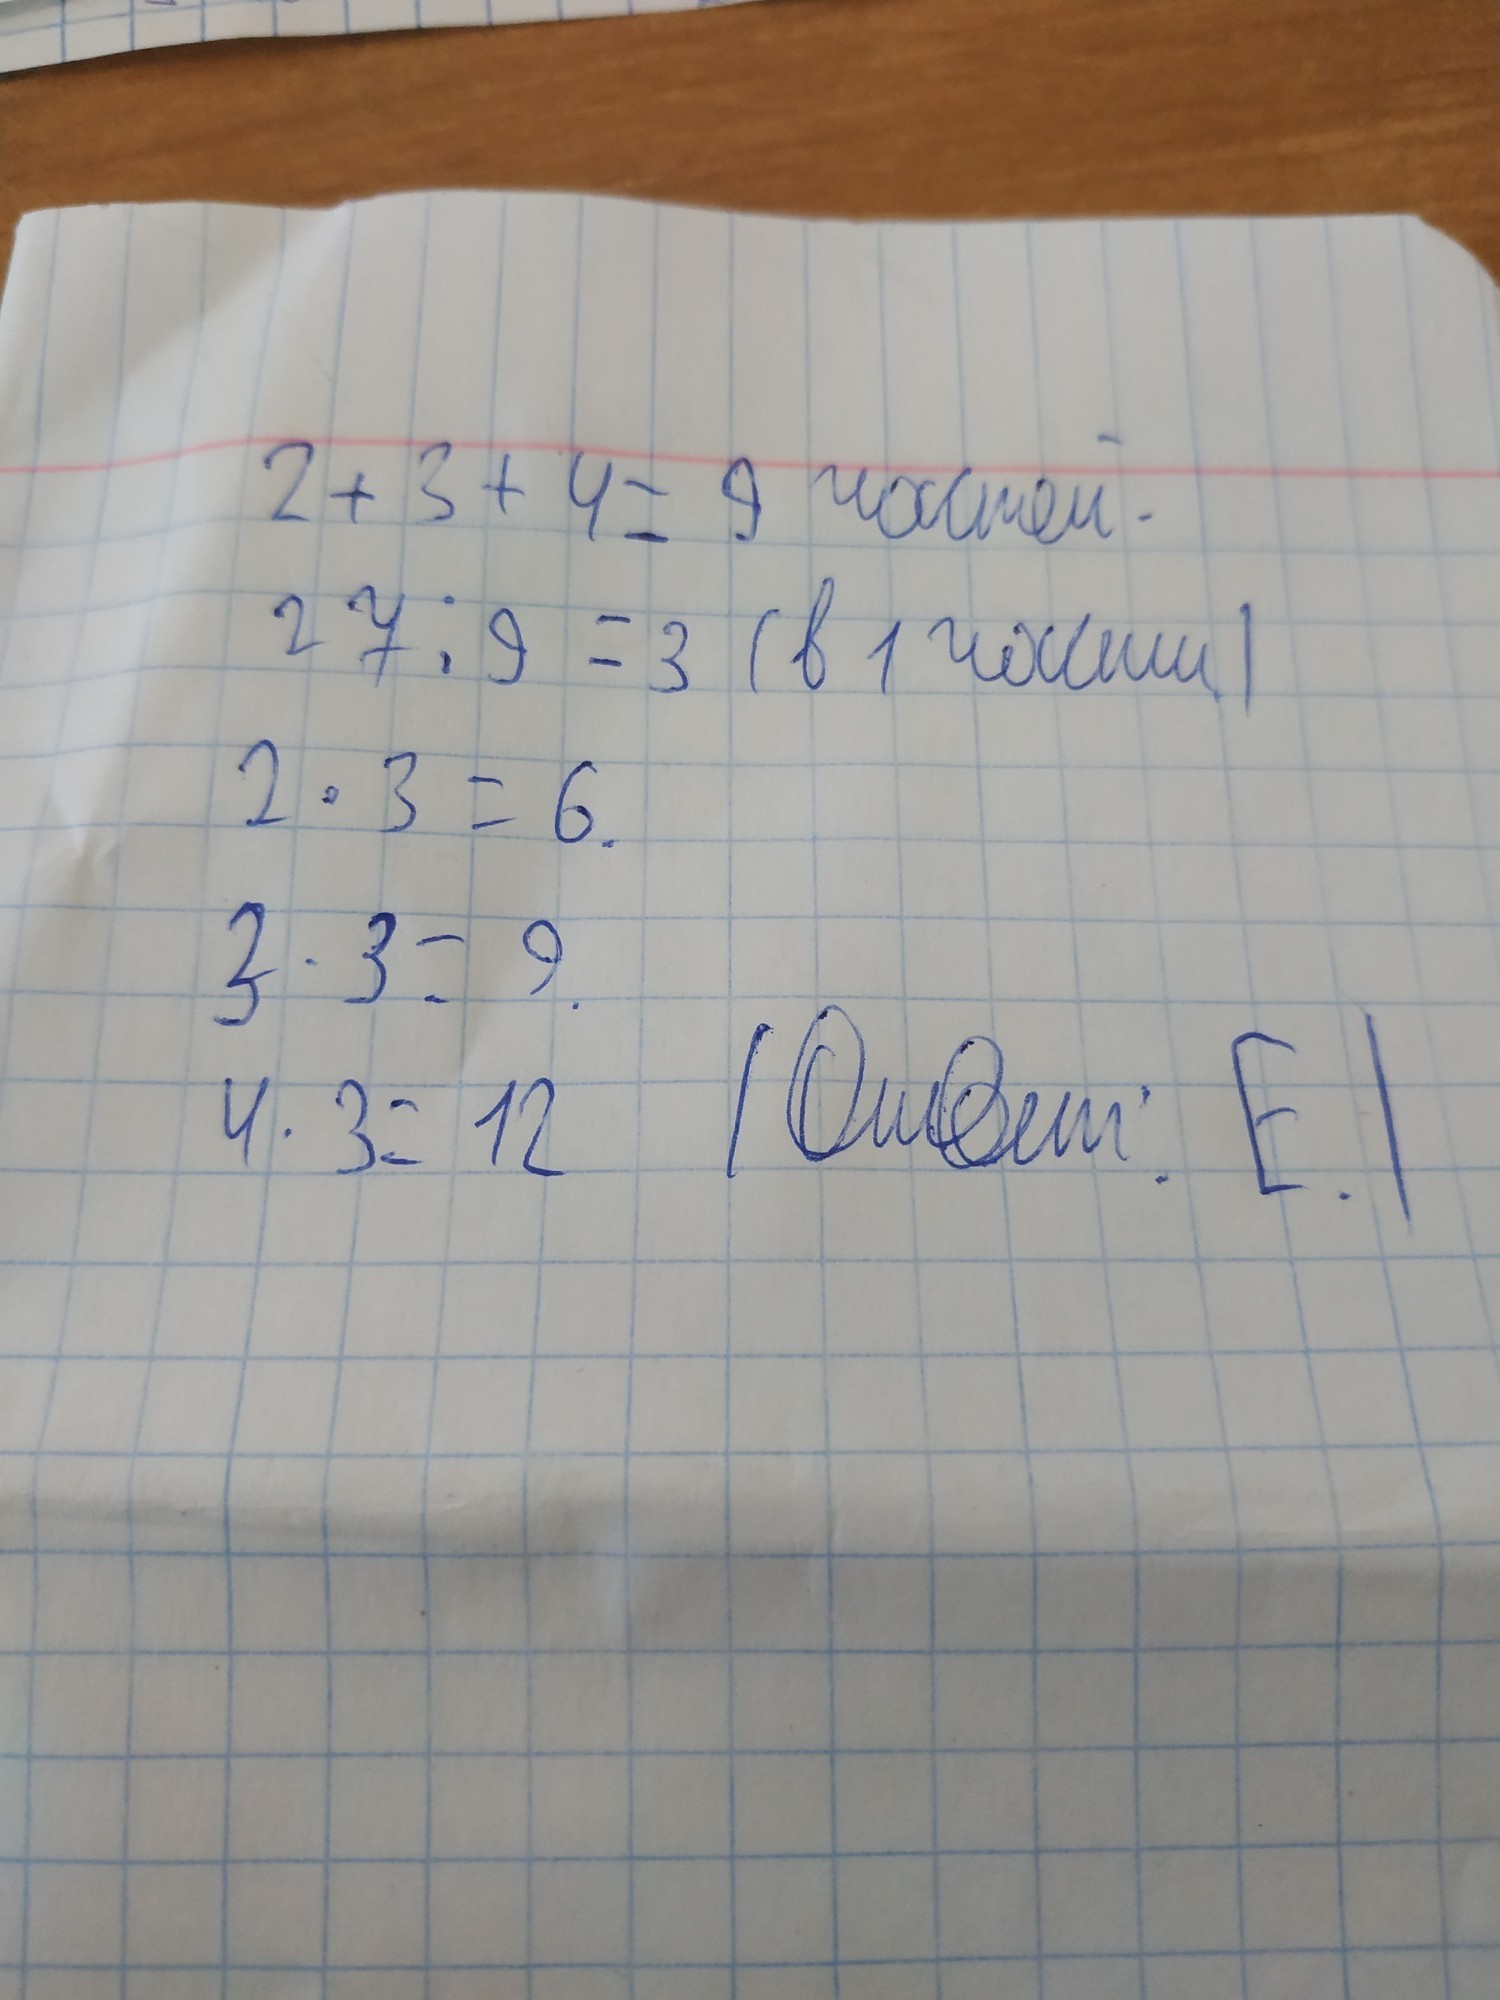 2 + 3 + 4 = 9 частей.
27 : 9 = 3 (в 1 части)
2 · 3 = 6.
3 · 3 = 9.
4 · 3 = 12 (Ответ: E.)